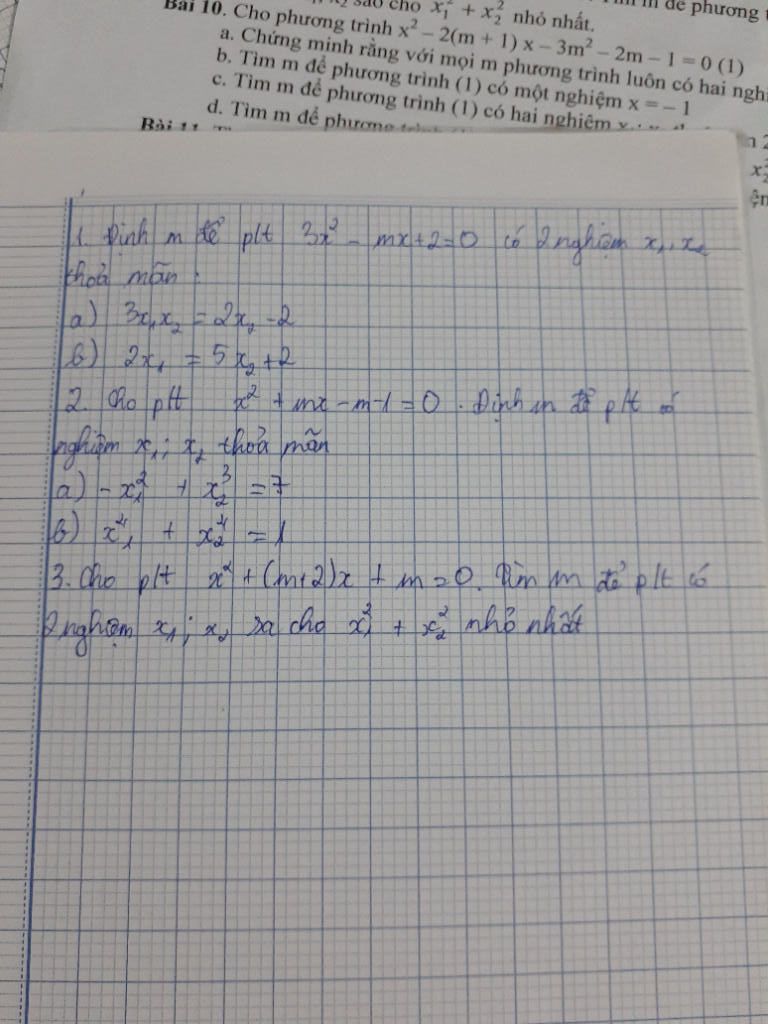 sao cho x₁² + x₂² nhỏ nhất.
m để phương
Bài 10. Cho phương trình x² – 2(m + 1) x – 3m² – 2m – 1 = 0 (1)
a. Chứng minh rằng với mọi m phương trình luôn có hai nghi
b. Tìm m để phương trình (1) có một nghiệm x = – 1
c. Tìm m để phương trình (1) có hai nghiệm
d. Tìm m để phương
Bài 11.
1. Định m để plt 3x² – mx+2=0 có 2 nghiệm x₁, x₂
thoả mãn :
a) 3x₁x₂ = 2x₂ -2
b) 2x₁ = 5x₂+2
2. Cho plt x² + mx – m-1 = 0 . Định m để plt có
nghiệm x₁; x₂ thoả mãn
a) - x₁² + x₂³ = 7
b) x₁⁴ + x₂⁴ = 1
3. Cho plt x² + (m+2)x + m = 0. Tìm m để plt có
2 nghiệm x₁; x₂ sa cho x₁² + x₂² nhỏ nhất